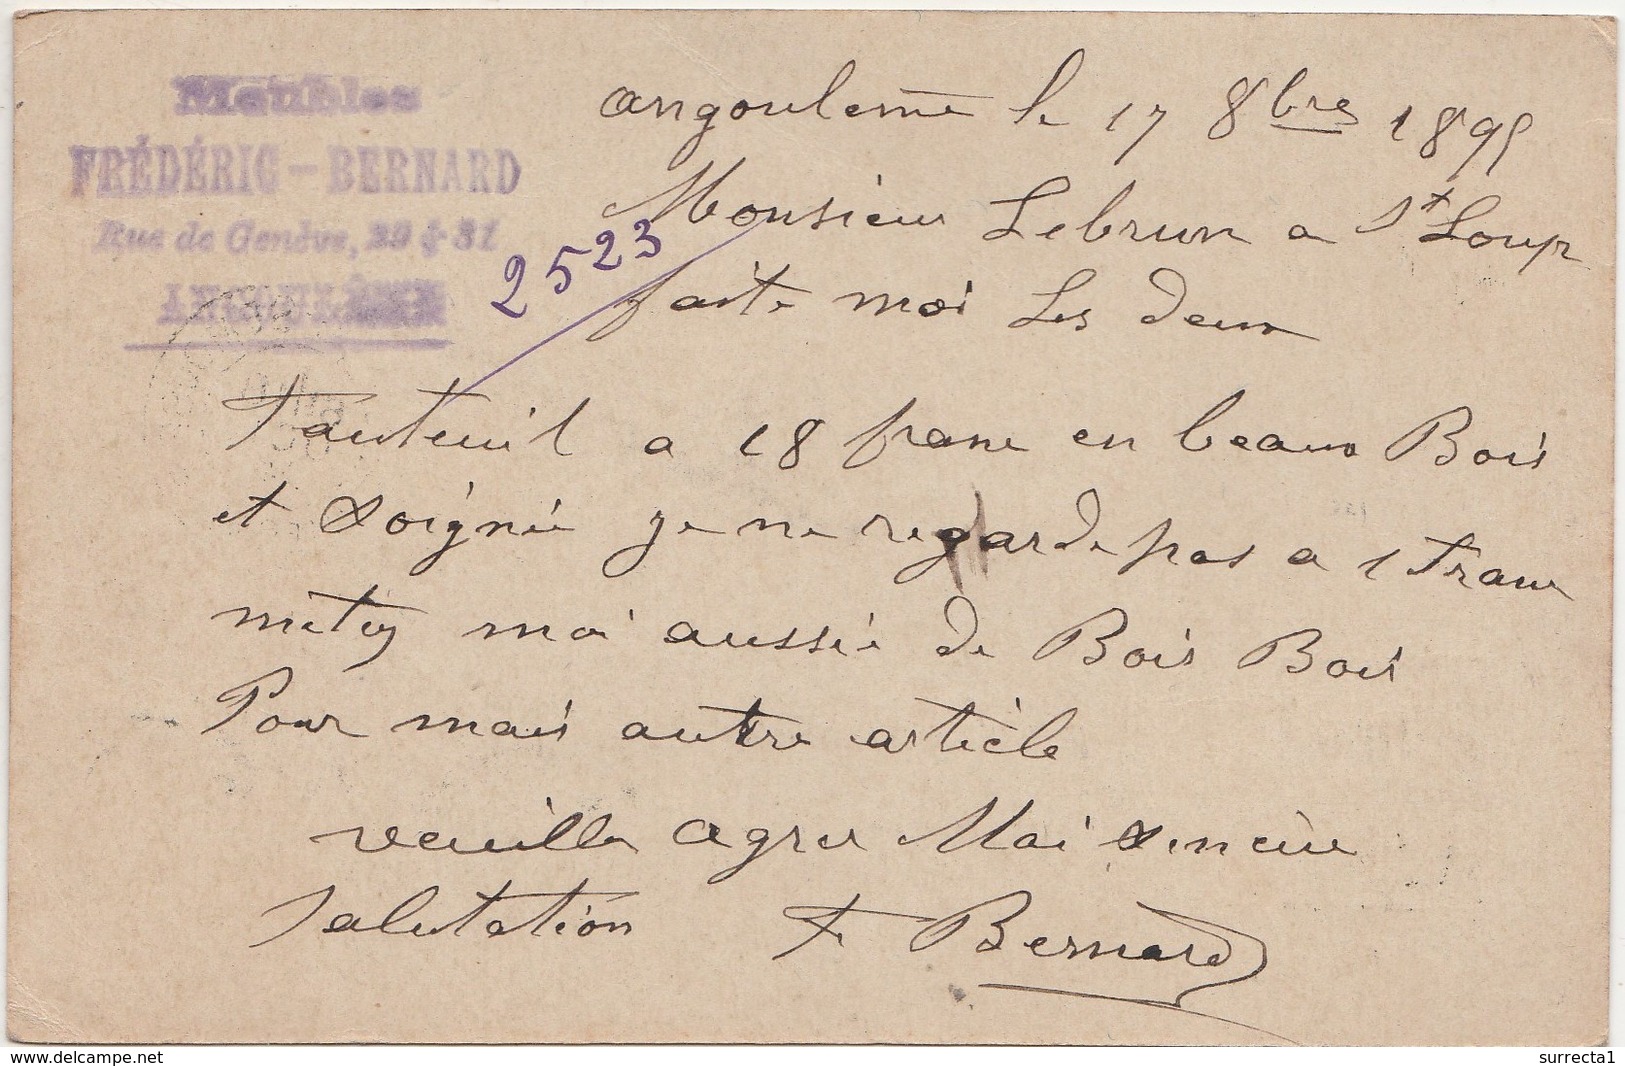 Meubles
FRÉDÉRIC - BERNARD
Rue de Genève, 29 & 31
ANGOULÊME
2523
angouleme le 17 8bres 1895
Monsieur Lebrun a St Loup
faite moi Les deux
Fauteuil a 18 franc en beaux Bois
et soignée je ne regarde pas a 1 franc
metez moi aussie de Bois Bois
Pour mais autre articlè
veuille agrer Moi sincire
salutation F Bernard
www.delcampe.net
surrecta1